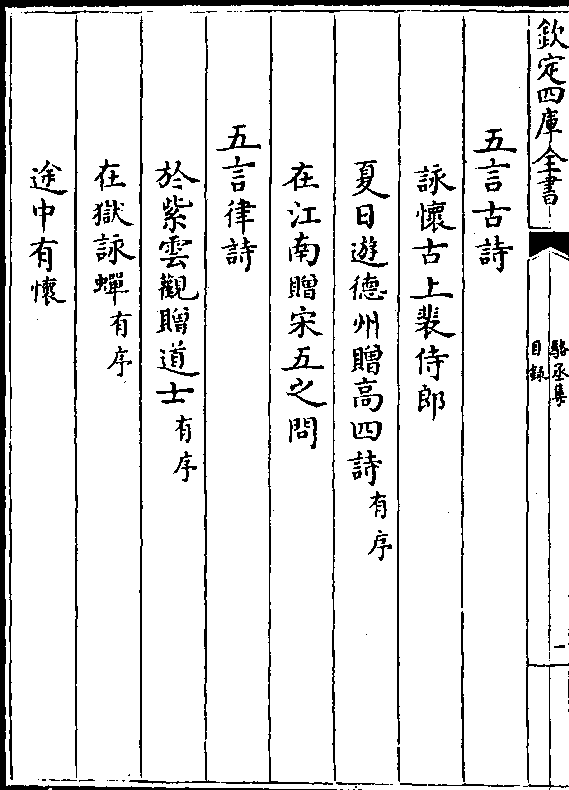 欽定四庫全書
駱丞集
目録
一
五言古詩
詠懷古上裴侍郎
夏日遊德州贈高四詩有序
在江南贈宋五之問
五言律詩
於紫雲觀贈道士有序
在獄詠蟬有序
途中有懷